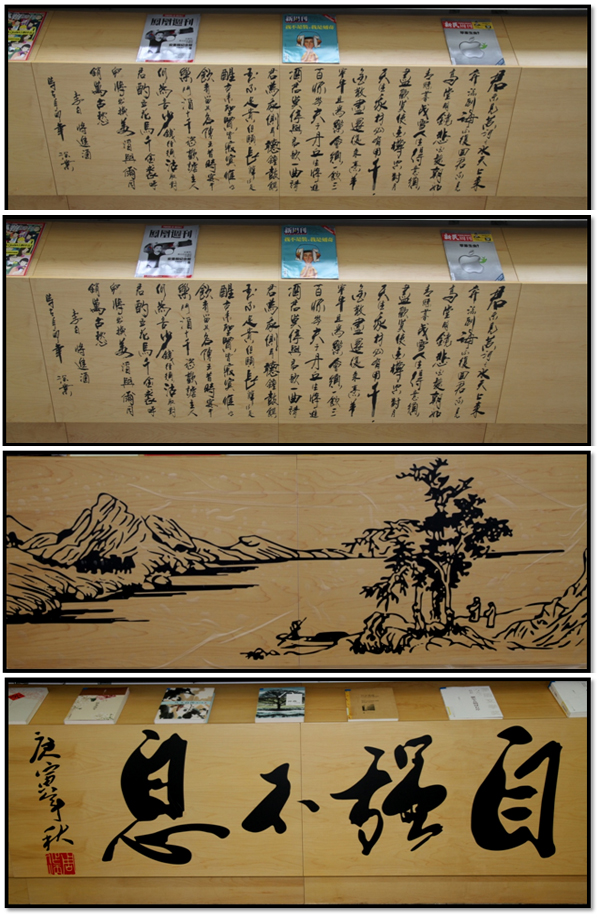 鳳凰週刊
新周刊
新民周刊
君不見黃河之水天上來
奔流到海不復回君不見
高堂明鏡悲白髮朝如
青絲暮成雪人生得意須
盡歡莫使金樽空對月
天生我材必有用千
金散盡還復來烹羊
宰牛且為樂會須一飲三
百杯岑夫子丹丘生將進
酒君莫停與君歌一曲請
君為我側耳聽鐘鼓饌
玉不足貴但願長醉不
醒古來聖賢皆寂寞惟有
飲者留其名陳王昔時宴平
樂斗酒十千恣歡謔主人
何為言少錢徑須沽取對
君酌五花馬千金裘呼
兒將出換美酒與爾同
銷萬古愁
李白 將進酒
鳳凰週刊
新周刊
新民周刊
君不見黃河之水天上來
奔流到海不復回君不見
高堂明鏡悲白髮朝如
青絲暮成雪人生得意須
盡歡莫使金樽空對月
天生我材必有用千
金散盡還復來烹羊
宰牛且為樂會須一飲三
百杯岑夫子丹丘生將進
酒君莫停與君歌一曲請
君為我側耳聽鐘鼓饌
玉不足貴但願長醉不
醒古來聖賢皆寂寞惟有
飲者留其名陳王昔時宴平
樂斗酒十千恣歡謔主人
何為言少錢徑須沽取對
君酌五花馬千金裘呼
兒將出換美酒與爾同
銷萬古愁
李白 將進酒
自強不息
庚寅年秋